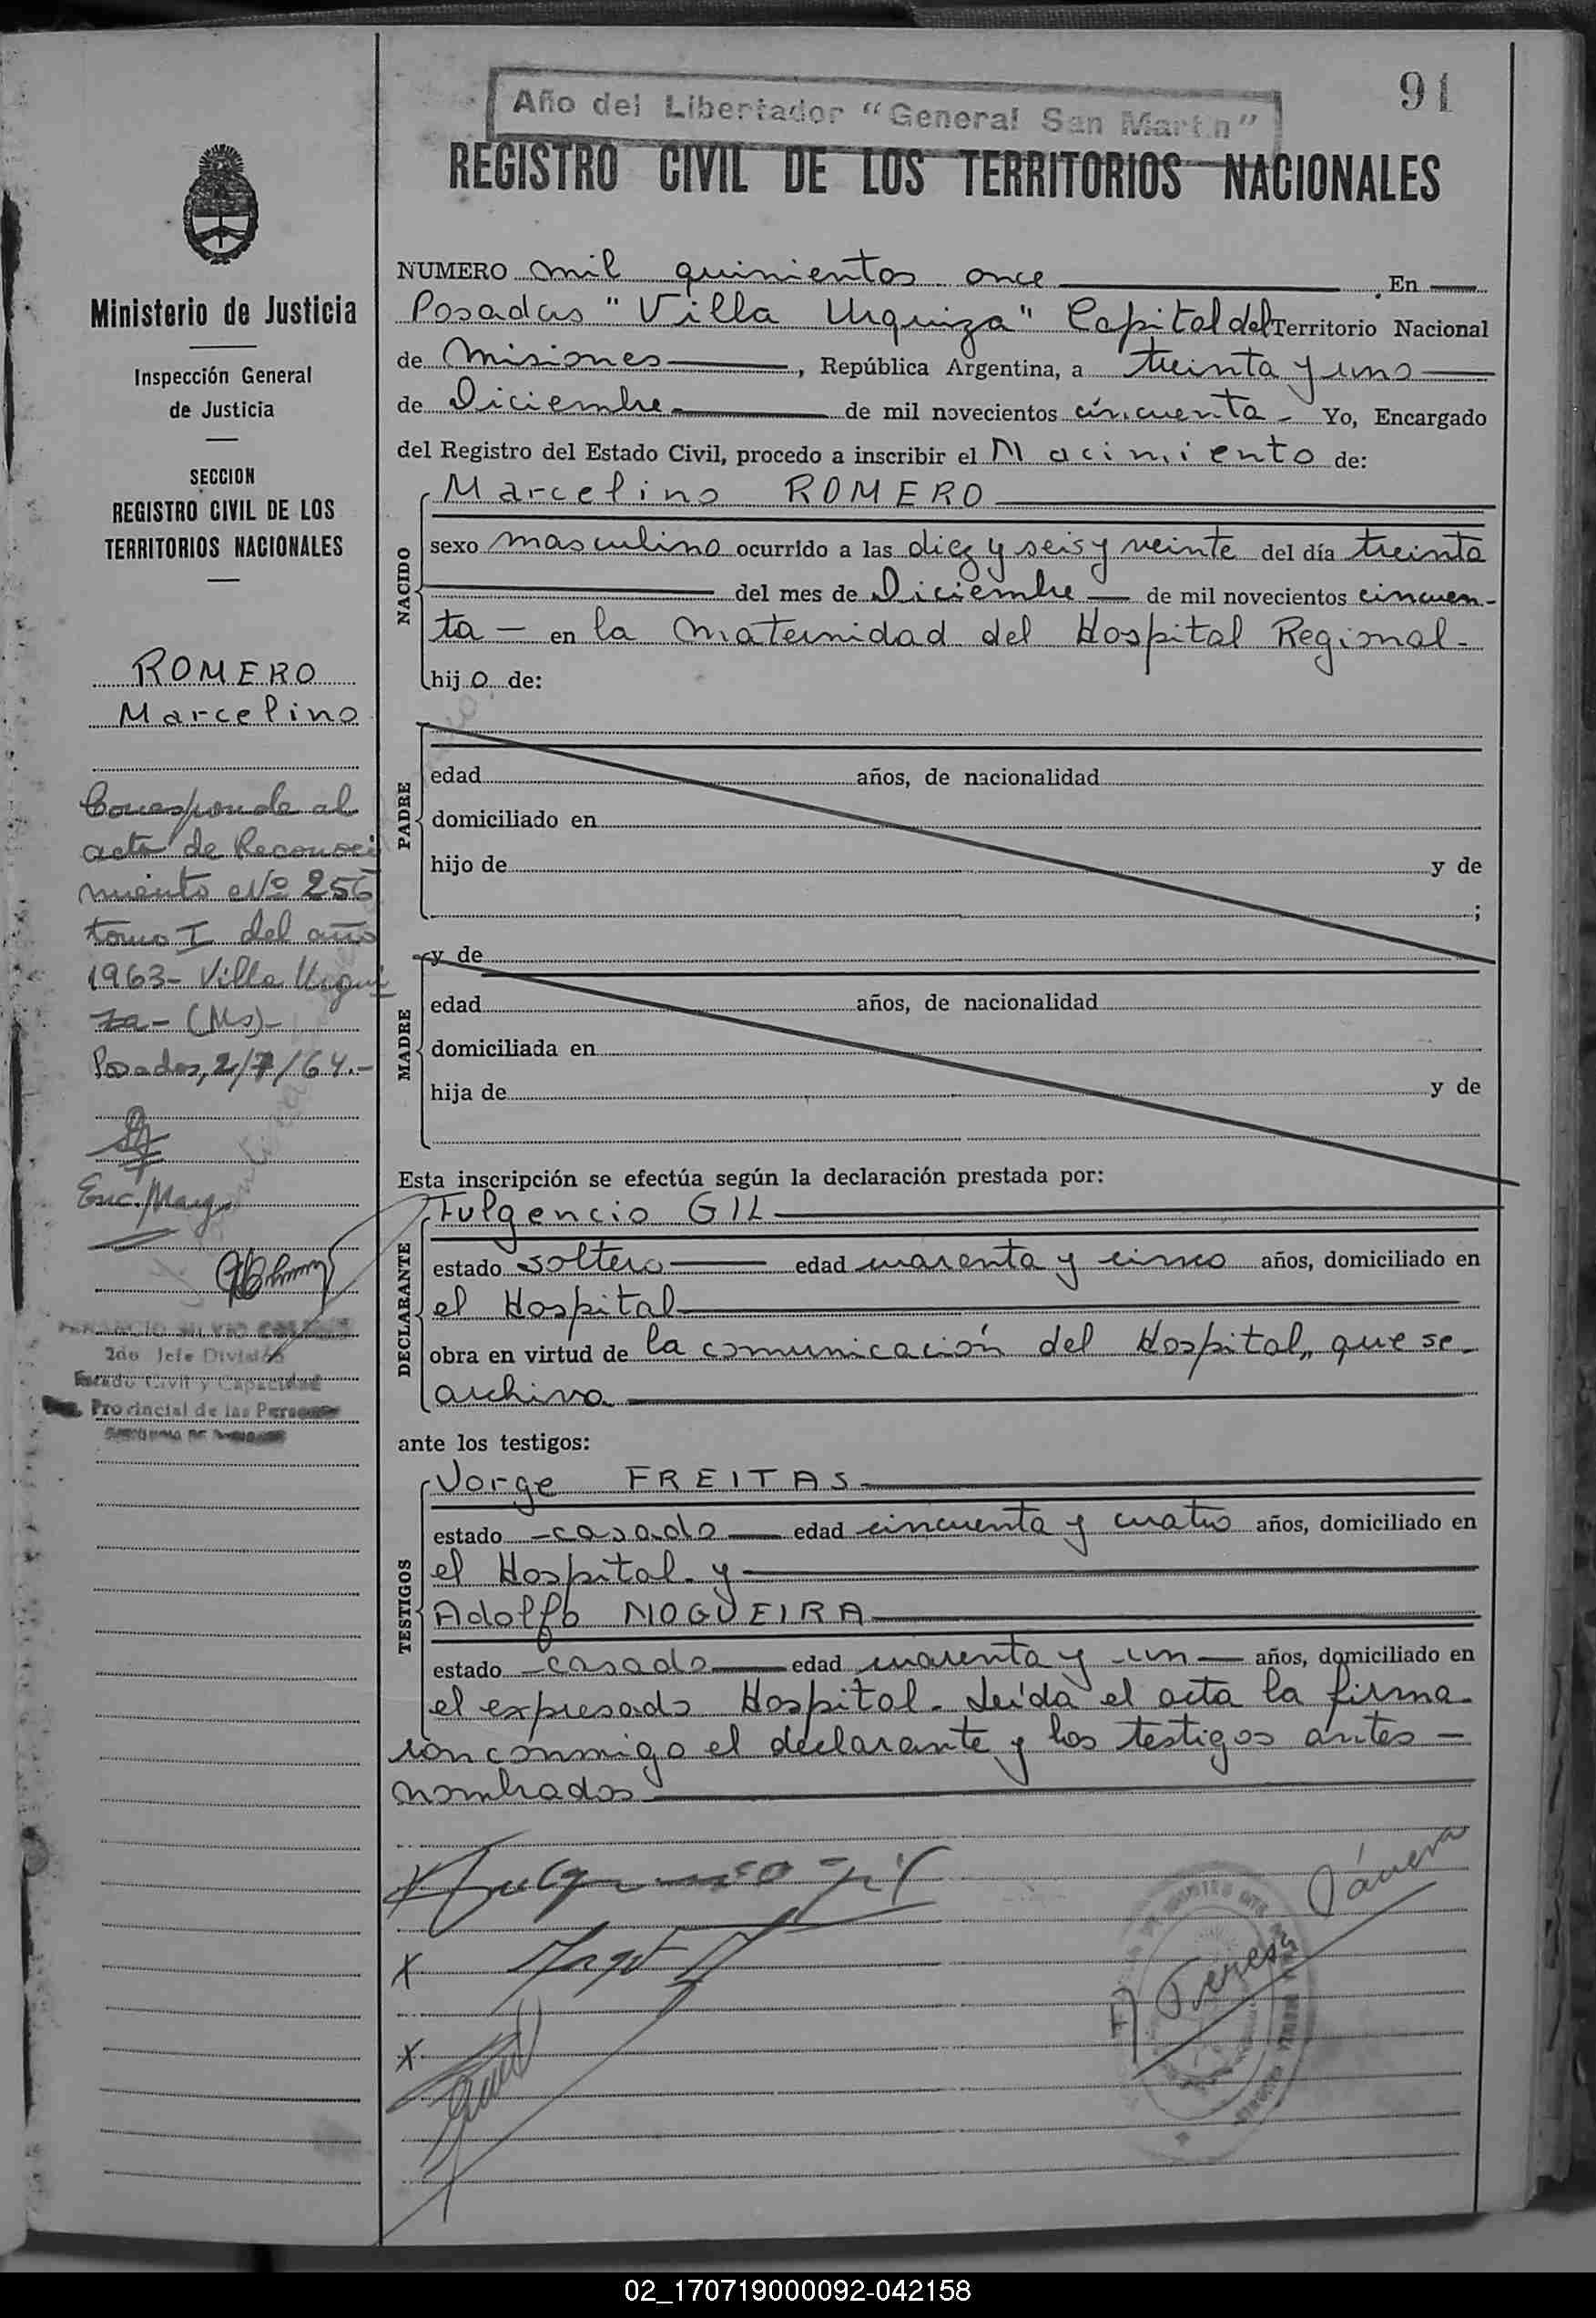 91
Año del Libertador “General San Martin”
REGISTRO CIVIL DE LOS TERRITORIOS NACIONALES
Ministerio de Justicia
Inspección General
de Justicia
SECCION
REGISTRO CIVIL DE LOS
TERRITORIOS NACIONALES
ROMERO
Marcelino
Corresponde al
acta de Reconoci
miento Nº 256
tomo I del año
1963- Villa Urqui
za- (Ms)-
Posadas, 2/7/64.-
Enc. Marg
2do Jefe División
Estado Civil y Capacidad
Provincial de las Personas
NUMERO mil quinientos once En
Posadas "Villa Urquiza" Capital del Territorio Nacional
de Misiones, República Argentina, a treinta y uno
de Diciembre de mil novecientos cincuenta - Yo, Encargado
del Registro del Estado Civil, procedo a inscribir el Nacimiento de:
NACIDO
Marcelino ROMERO
sexo masculino ocurrido a las diez y seis y veinte del día treinta
del mes de Diciembre de mil novecientos cincuen-
ta - en la maternidad del Hospital Regional-
hijo de:
PADRE
edad años, de nacionalidad
domiciliado en
hijo de y de
;
MADRE
y de
edad años, de nacionalidad
domiciliada en
hija de y de
Esta inscripción se efectúa según la declaración prestada por:
DECLARANTE
Fulgencio GIL
estado soltero edad cuarenta y cinco años, domiciliado en
el Hospital
obra en virtud de la comunicación del Hospital, que se-
archiva
ante los testigos:
TESTIGOS
Jorge FREITAS
estado -casado edad cincuenta y cuatro años, domiciliado en
el Hospital. y
Adolfo NOGUEIRA
estado -casado edad cuarenta y -un años, domiciliado en
el expresado Hospital. Leída el acta la firma-
ron conmigo el declarante y los testigos antes-
nombrados
Fulgencio Gil
02_170719000092-042158